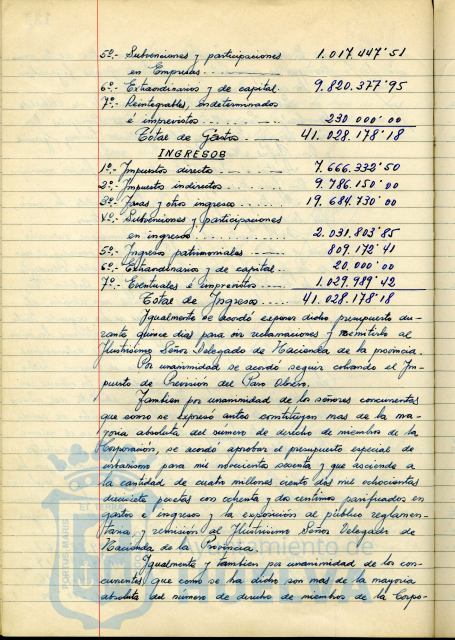 5º.- Subvenciones y participaciones 1.017.447'51
en Empresas
6º.- Extraordinarios y de capital. 9.820.377'95
7º.- Reintegrables, indeterminados
é imprevistos 230 000'00
Total de Gastos. 41.028.178'18
INGRESOS
1º.- Impuestos directos 7.666.332'50
2º.- Impuestos indirectos 9.786.150'00
3º.- Tasas y otros ingresos 19.684.730'00
4º.- Subvenciones y participaciones
en ingresos 2.031.803'85
5º.- Ingresos patrimoniales 809.172'41
6º.- Extraordinarios y de capital.. 20.000'00
7º.- Eventuales é imprevistos 1.029.989'42
Total de Ingresos 41.028.178'18
Igualmente se acordó exponer dicho presupuesto du-
rante quince dias para oir reclamaciones y remitirlo al
Ilustrisimo Señor Delegado de Hacienda de la provincia.
Por unanimidad se acordó seguir cobrando el Im-
puesto de Prevision del Paro Obrero.
Tambien por unanimidad de los señores concurrentes
que como se expresó antes constituyen mas de la ma-
yoria absoluta del número de derecho de miembros de la
Corporación, se acordó aprobar el presupuesto especial de
urbanismo para mil novecientos sesenta y que asciende a
la cantidad de cuatro millones ciento dos mil ochocientas
diecisiete pesetas con ochenta y dos centimos en
gastos e ingresos y la exposición al público reglamen-
taria y remisión al Ilustrisimo Señor Delegado de
Hacienda de la Provincia.
Igualmente y tambien por unanimidad de los con-
currentes que como se ha dicho son mas de la mayoria
absoluta del número de derecho de miembros de la Corpo-
PORTUS MAGNUS
Ayuntamiento de